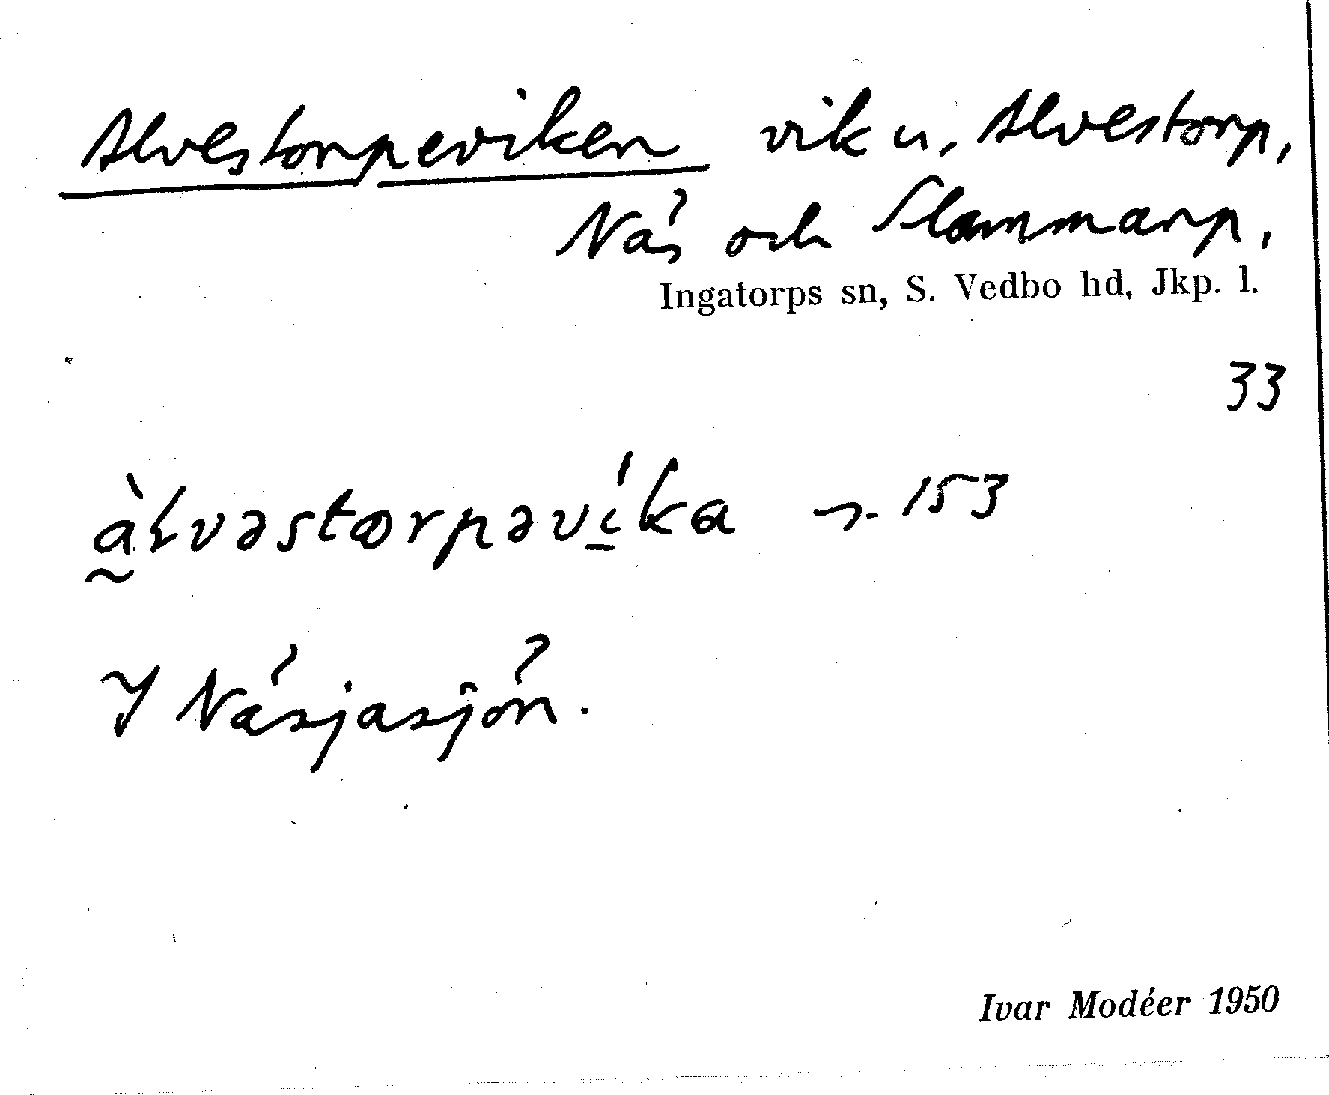 Alvestorpeviken vik u. Alvestorp,
Näs och Slammarp,
Ingatorps sn, S. Vedbo hd, Jkp. l.
33
àlvəstorpəvíka 153
I Näsjasjön.
Ivar Modéer 1950